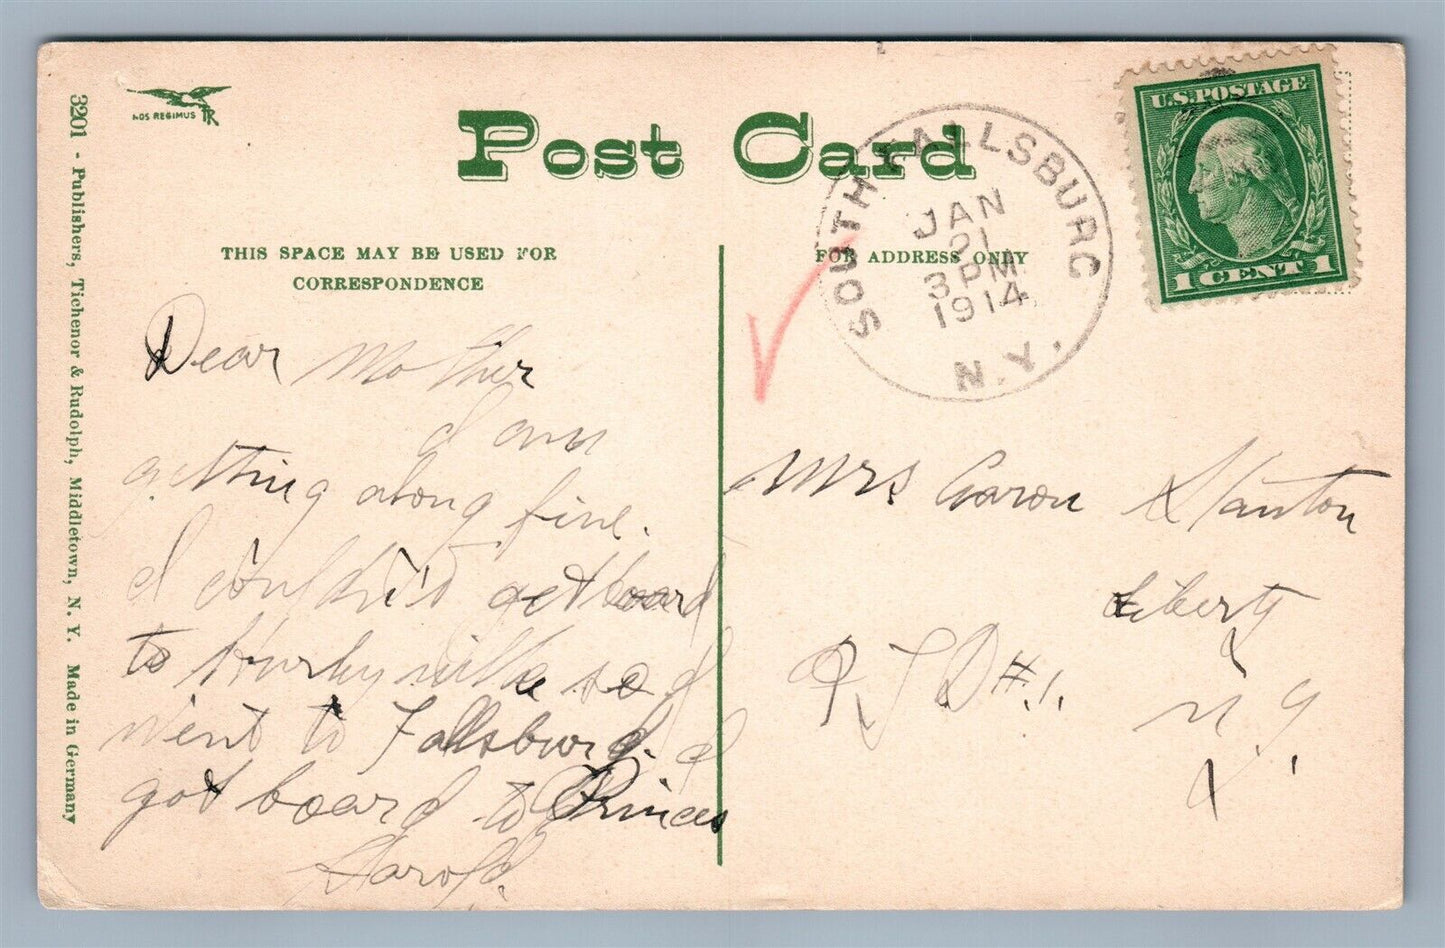 3201 - Publishers, Tichenor & Rudolph, Middletown, N. Y. Made in Germany
NOS REGIMUS TR
Post Card
THIS SPACE MAY BE USED FOR
CORRESPONDENCE
FOR ADDRESS ONLY
SOUTH FALLSBURG
JAN
21
3 PM
1914
N.Y.
U.S. POSTAGE
1 CENT 1
Dear Mother
I am
getting along fine.
I couldn't get board
to Hurleyville so I
went to Fallsburg. I
got board to Princes
Harold.
Mrs Aaron Stanton
Liberty
R F D #1.
N.Y.